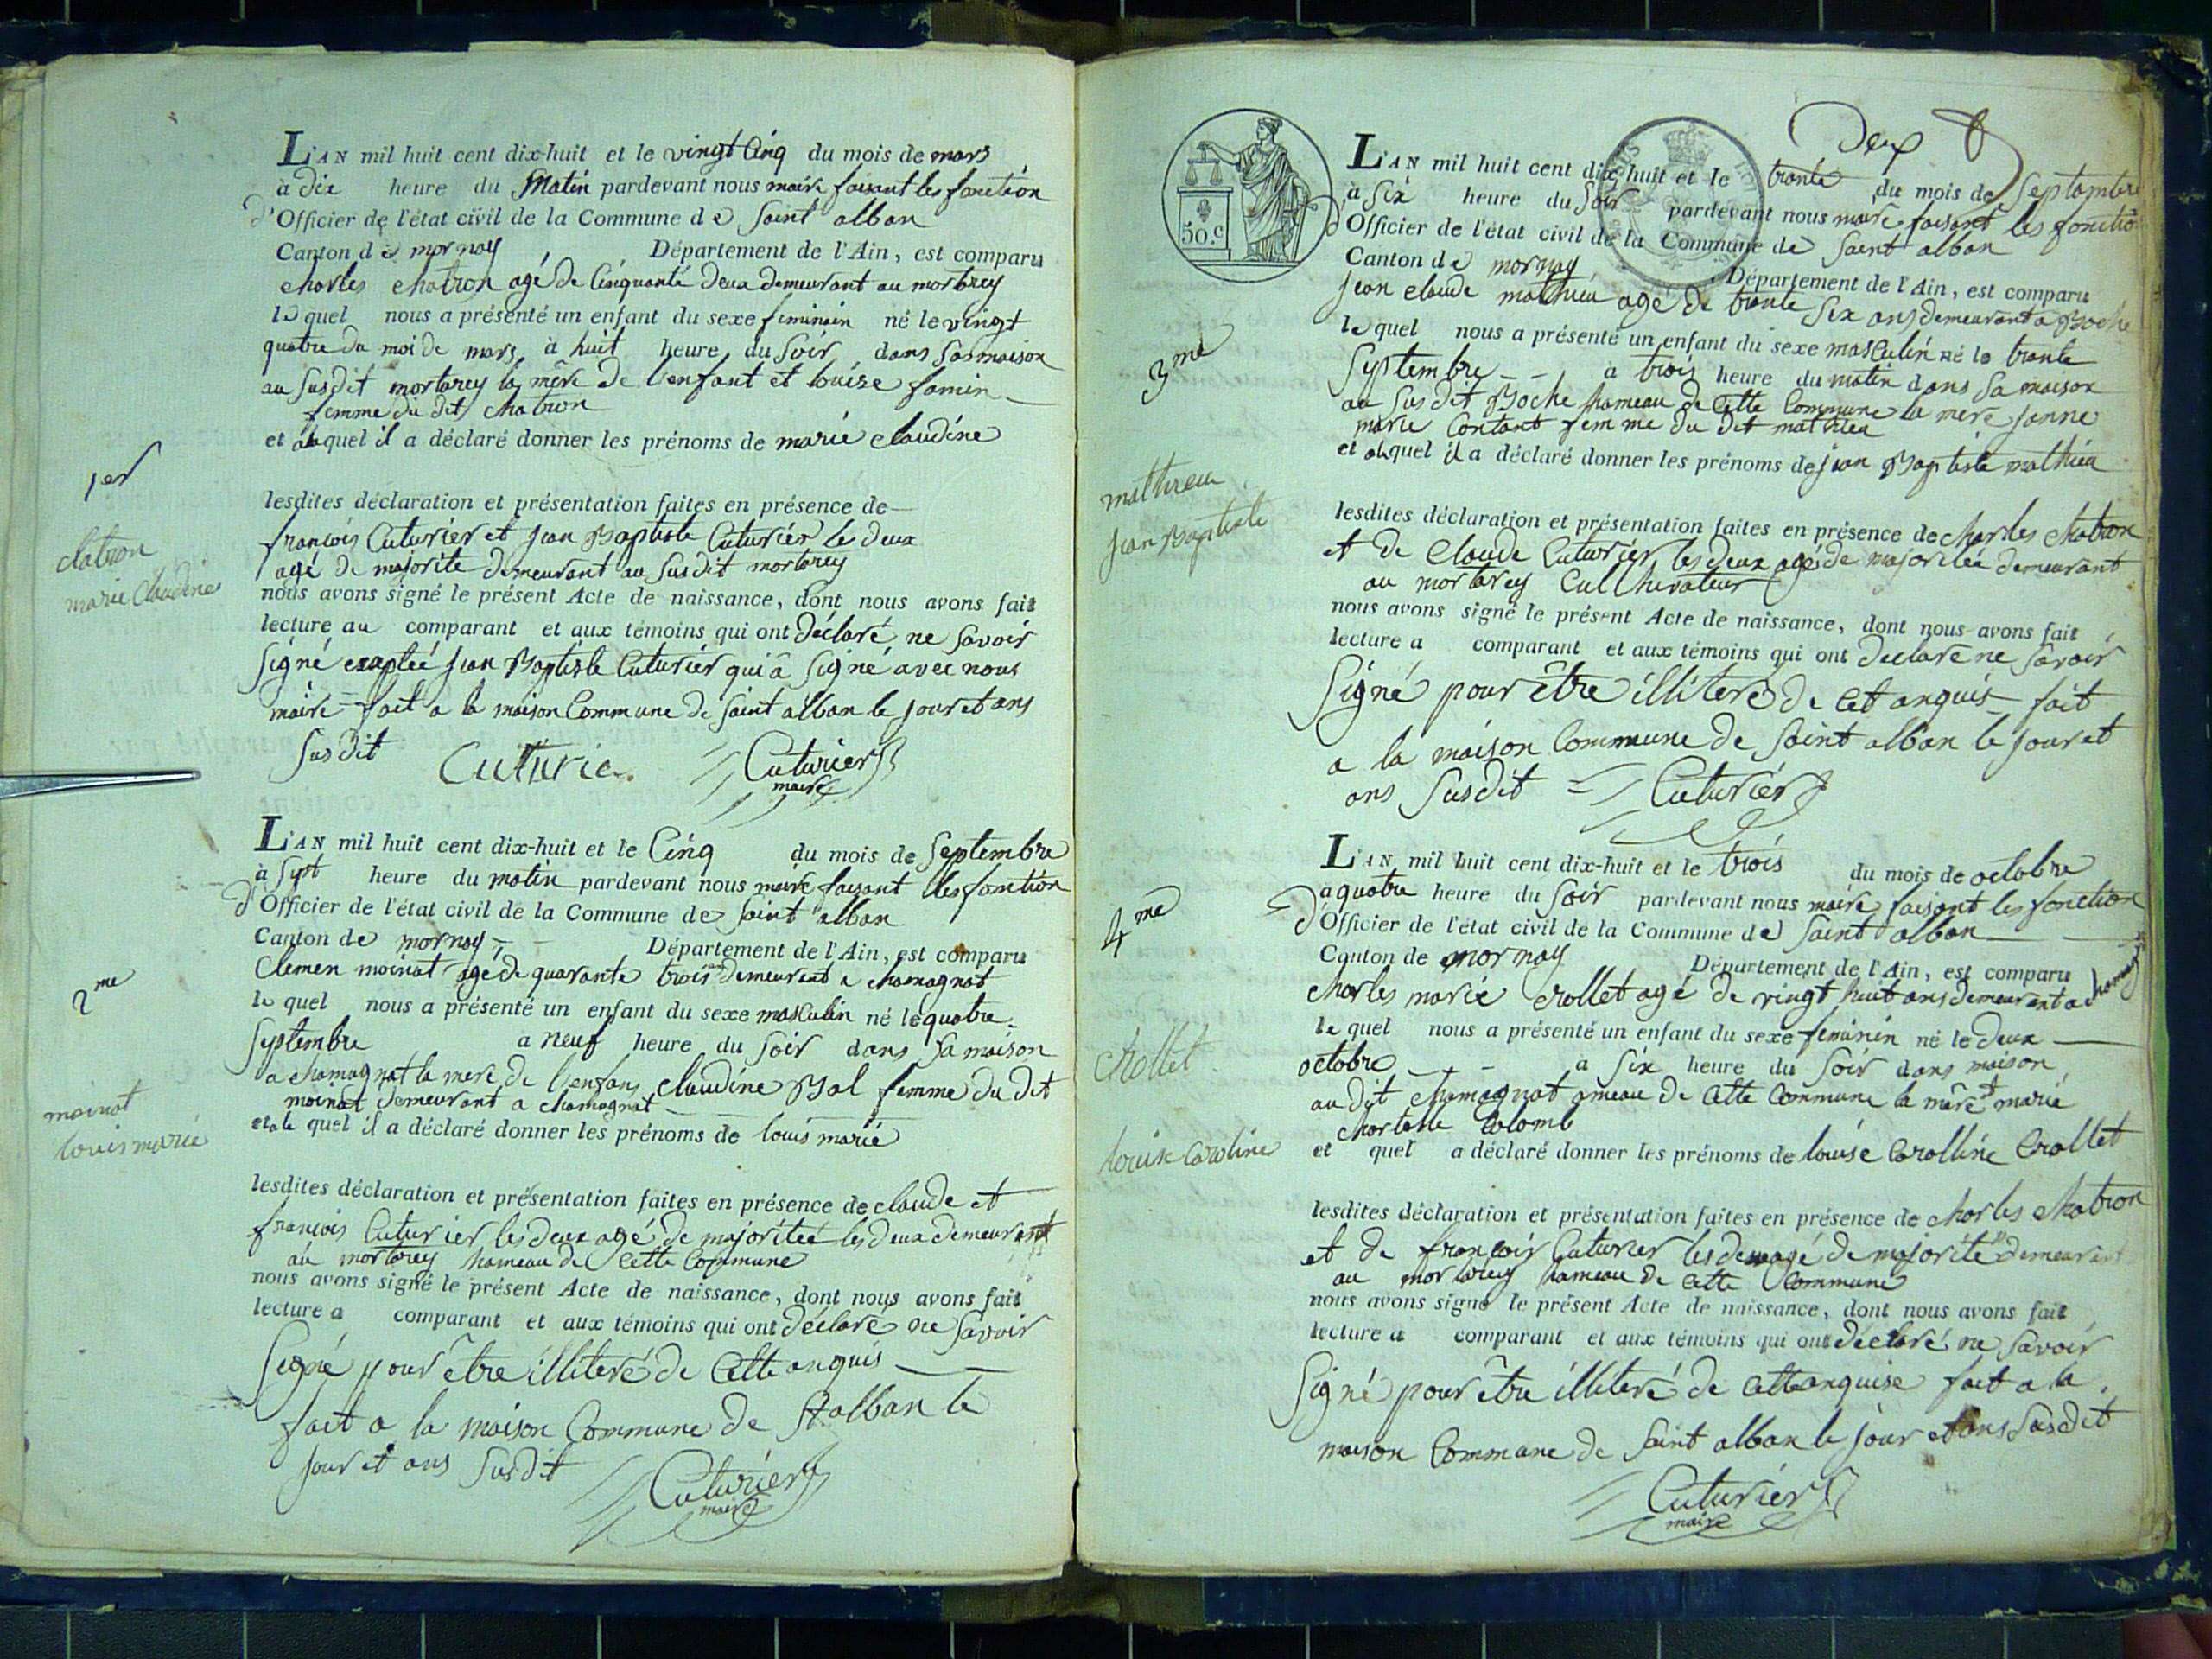 L'AN mil huit cent dix-huit et le vingt Cinq du mois de mars
à dix heure du Matin pardevant nous maire faisant les fonction
d'Officier de l'état civil de la Commune de Saint alban
Canton de mornay Département de l'Ain, est comparu
charles chatron agé de Cinquante deux demeurant au mortarey
le quel nous a présenté un enfant du sexe feminin né le vingt
quatre du moi de mars à huit heure du Soir dans Sa maison
au susdit mortarey la mère de l'enfant et louise famin
femme du dit chatron
et auquel il a déclaré donner les prénoms de marie claudine
1er
chatron
marie Claudine
lesdites déclaration et présentation faites en présence de
françois Cuturier et jean Baptiste Cuturier les deux
agé de majorite demeurant au susdit mortarey
nous avons signé le présent Acte de naissance, dont nous avons fait
lecture au comparant et aux témoins qui ont déclaré ne Savoir
Signé exaptée jean Baptiste Cuturier qui a Signé avec nous
maire fait a la maison Commune de Saint alban le jour et ans
Susdit Cuturie Cuturier
maire
L'AN mil huit cent dix-huit et le Cinq du mois de Septembre
à Sept heure du matin pardevant nous maire faisant les fonction
d'Officier de l'état civil de la Commune de Saint alban
Canton de mornay Département de l'Ain, est comparu
Clemen moinat agé de quarante trois ans demeurant a chamagnat
le quel nous a présenté un enfant du sexe masculin né le quatre
Septembre a neuf heure du Soir dans Sa maison
a chamagnat la mere de l'enfans claudine Bal femme du dit
moinat demeurant a chamagnat
et a le quel il a déclaré donner les prénoms de louis marie
2me
moinat
louis marie
lesdites déclaration et présentation faites en présence de claude et
françois Cuturier les deux agé de majoritée les deux demeurant
au mortarey hameau de Cette Commune
nous avons signé le présent Acte de naissance, dont nous avons fait
lecture a comparant et aux témoins qui ont déclaré ne Savoir
Signé pour être illiteré de Cette anquis
fait a la maison Commune de St alban le
jour et ans Susdit Cuturier
maire
Deux
50.c
L'AN mil huit cent dix-huit et le trante du mois de Septembre
à Six heure du Soir pardevant nous maire faisant les fonction
d'Officier de l'état civil de la Commune de Saint alban
Canton de mornay Département de l'Ain, est comparu
jean claude mathieu agé de trante Six ans demeurant a Boche
le quel nous a présenté un enfant du sexe masculin né le trante
Septembre à trois heure du matin dans Sa maison
au susdit Boche hameau de Cette Commune la mere janne
marie Contant femme du dit mathieu
et auquel il a déclaré donner les prénoms de jean Baptiste mathieu
3me
mathieu
jean Baptiste
lesdites déclaration et présentation faites en présence de charles chatron
et de Claude Cuturier les deux agé de majoritée demeurant
au mortarey Culthivateur
nous avons signé le présent Acte de naissance, dont nous avons fait
lecture a comparant et aux témoins qui ont declaré ne Savoir
Signé pour être illiteré de Cet anquis fait
a la maison Commune de Saint alban le jour et
ans Susdit Cuturier
L'AN mil huit cent dix-huit et le trois du mois de octobre
a quatre heure du Soir pardevant nous maire faisant les fonction
d'Officier de l'état civil de la Commune de Saint alban
Canton de mornay Département de l'Ain, est comparu
charles marie Crollet agé de vingt huit ans demeurant a
le quel nous a présenté un enfant du sexe feminin né le deux
octobre a Six heure du Soir dans maison
au dit chamagnat ameau de Cette Commune la mère et marie
Colomb
et quel a déclaré donner les prénoms de louise Carolline Crollet
4me
Crollet
louise Caroline
lesdites déclaration et présentation faites en présence de charles chatron
et de françois Cuturier les deux agé de majorité demeurant
au mortarey hameau de Cette Commune
nous avons signé le présent Acte de naissance, dont nous avons fait
lecture a comparant et aux témoins qui ont declaré ne Savoir
Signé pour être illiteré de Cette anquise fait a la
maison Commune de Saint alban le jour et ans Susdit
Cuturier
maire